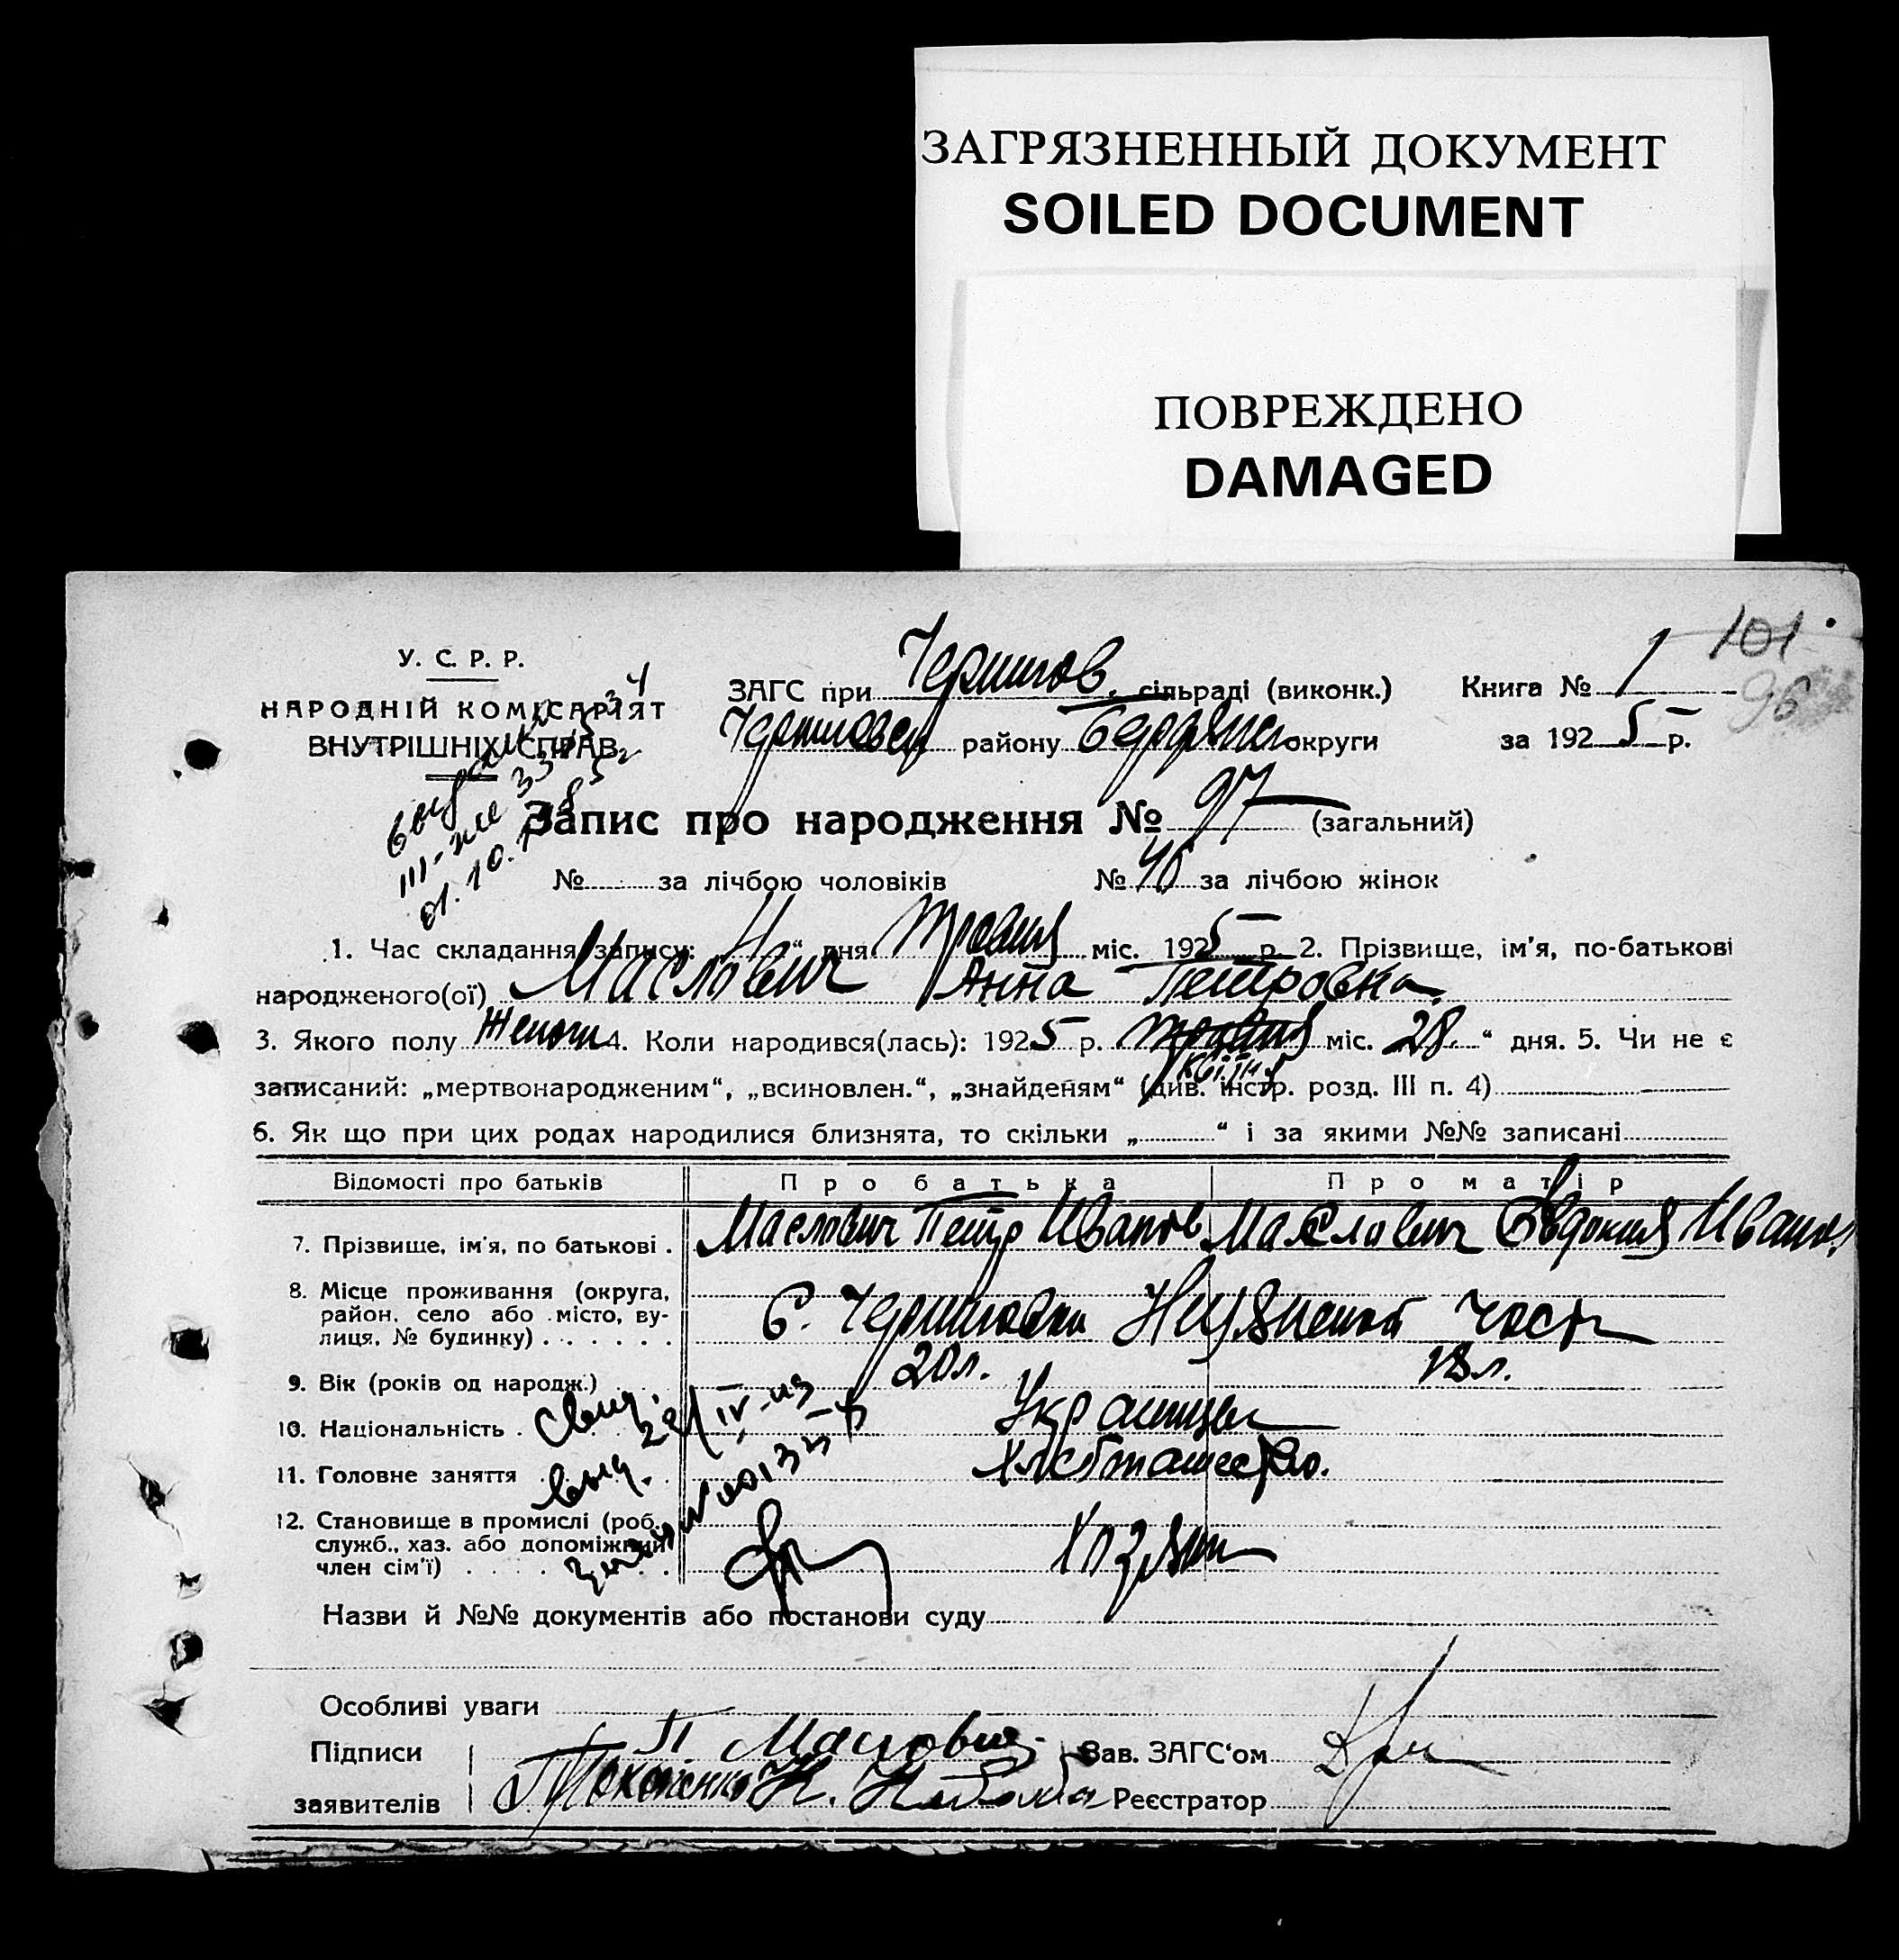 ЗАГРЯЗНЕННЫЙ ДОКУМЕНТ
SOILED DOCUMENT
ПОВРЕЖДЕНО
DAMAGED
101
96
У. С. Р. Р.
НАРОДНІЙ КОМІСАРІЯТ
ВНУТРІШНІХ СПРАВ
ЗАГС при Чернигов. сільраді (виконк.) Книга № 1
району округи за 1925 р.
Запис про народження № 97 (загальний)
№ за лічбою чоловіків № 46 за лічбою жінок
1. Час складання запису: "дня Травня міс. 1925 р. 2. Прізвище, ім'я, по-батькові
народженого(ої) Маслович Анна Петровна.
3. Якого полу 4. Коли народився(лась): 1925 р. травня міс. 28 " дня. 5. Чи не є
квітня
записаний: „мертвонародженим“, „всиновлен.“, „знайденям“ (див. інстр. розд. III п. 4)
6. Як що при цих родах народилися близнята, то скільки „ “ і за якими №№ записані
Відомості про батьків Про батька Про матір
7. Прізвище, ім'я, по батькові . Маслович Петр Иванов Маслович Евдокия Иванов
8. Місце проживання (округа,
район, село або місто, ву-
лиця, № будинку) . . . . . . с. Черниговка част
9. Вік (років од народж.) 20 л. 18 л.
10. Національність . Украинцы
11. Головне заняття Хлебопашество.
12. Становище в промислі (роб.
служб., хаз. або допоміжний
член сім'ї) . . . . Хозяин
Назви й №№ документів або постанови суду
Особливі уваги
Підписи П. Маслович Зав. ЗАГС‘ом
заявителів Реєстратор